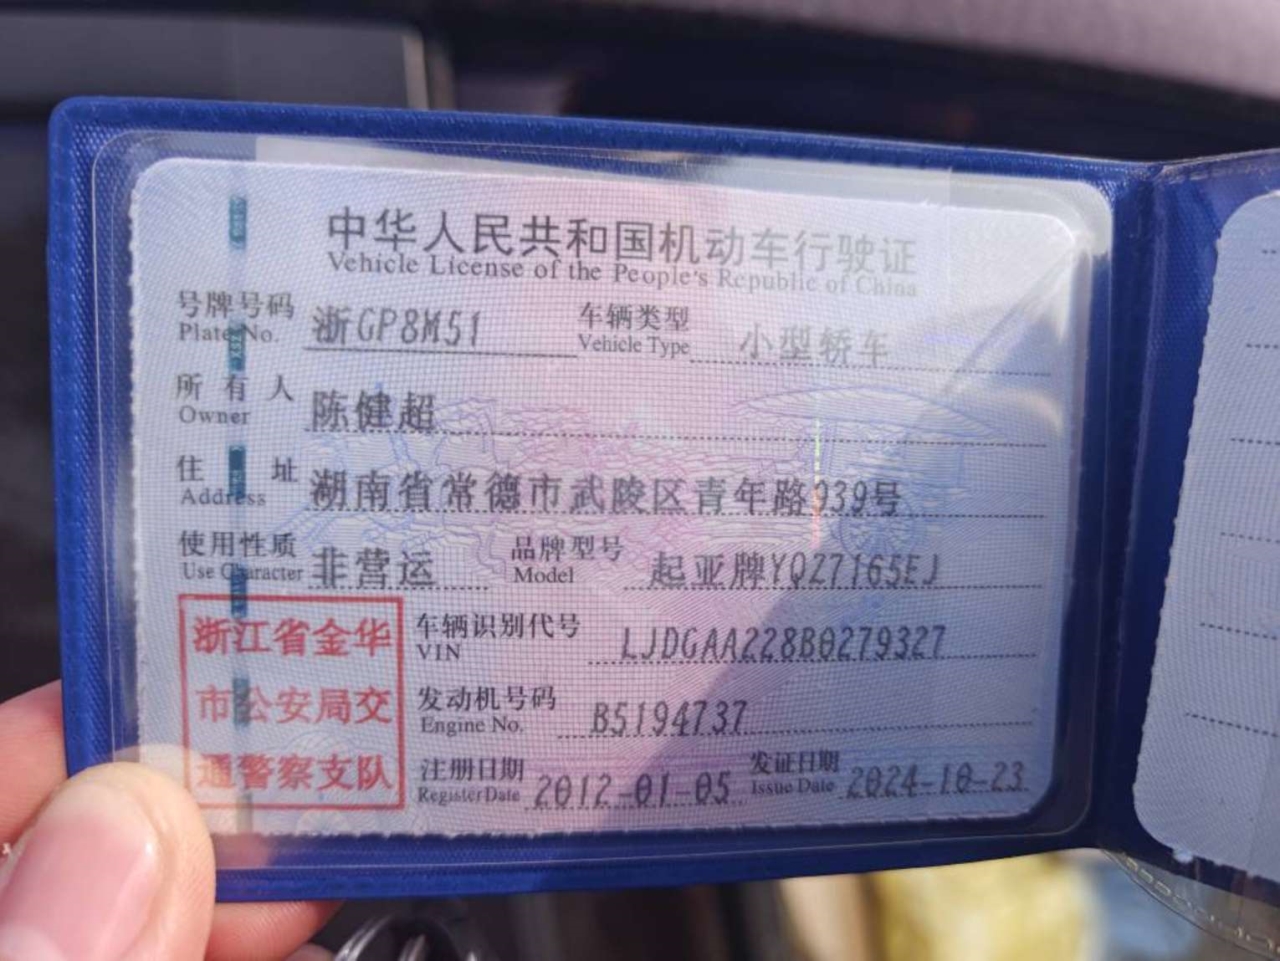 中华人民共和国机动车行驶证
Vehicle License of the People's Republic of China
号牌号码 浙GP8M51 车辆类型 小型轿车
Plate No. Vehicle Type
所有人 陈健超
Owner
住址 湖南省常德市武陵区青年路939号
Address
使用性质 非营运 品牌型号 起亚牌YQZ7165EJ
Use Character Model
浙江省金华
市公安局交
通警察支队
车辆识别代号 LJDGAA228B0279327
VIN
发动机号码 B5194737
Engine No.
注册日期 2012-01-05 发证日期 2024-10-23
Register Date Issue Date